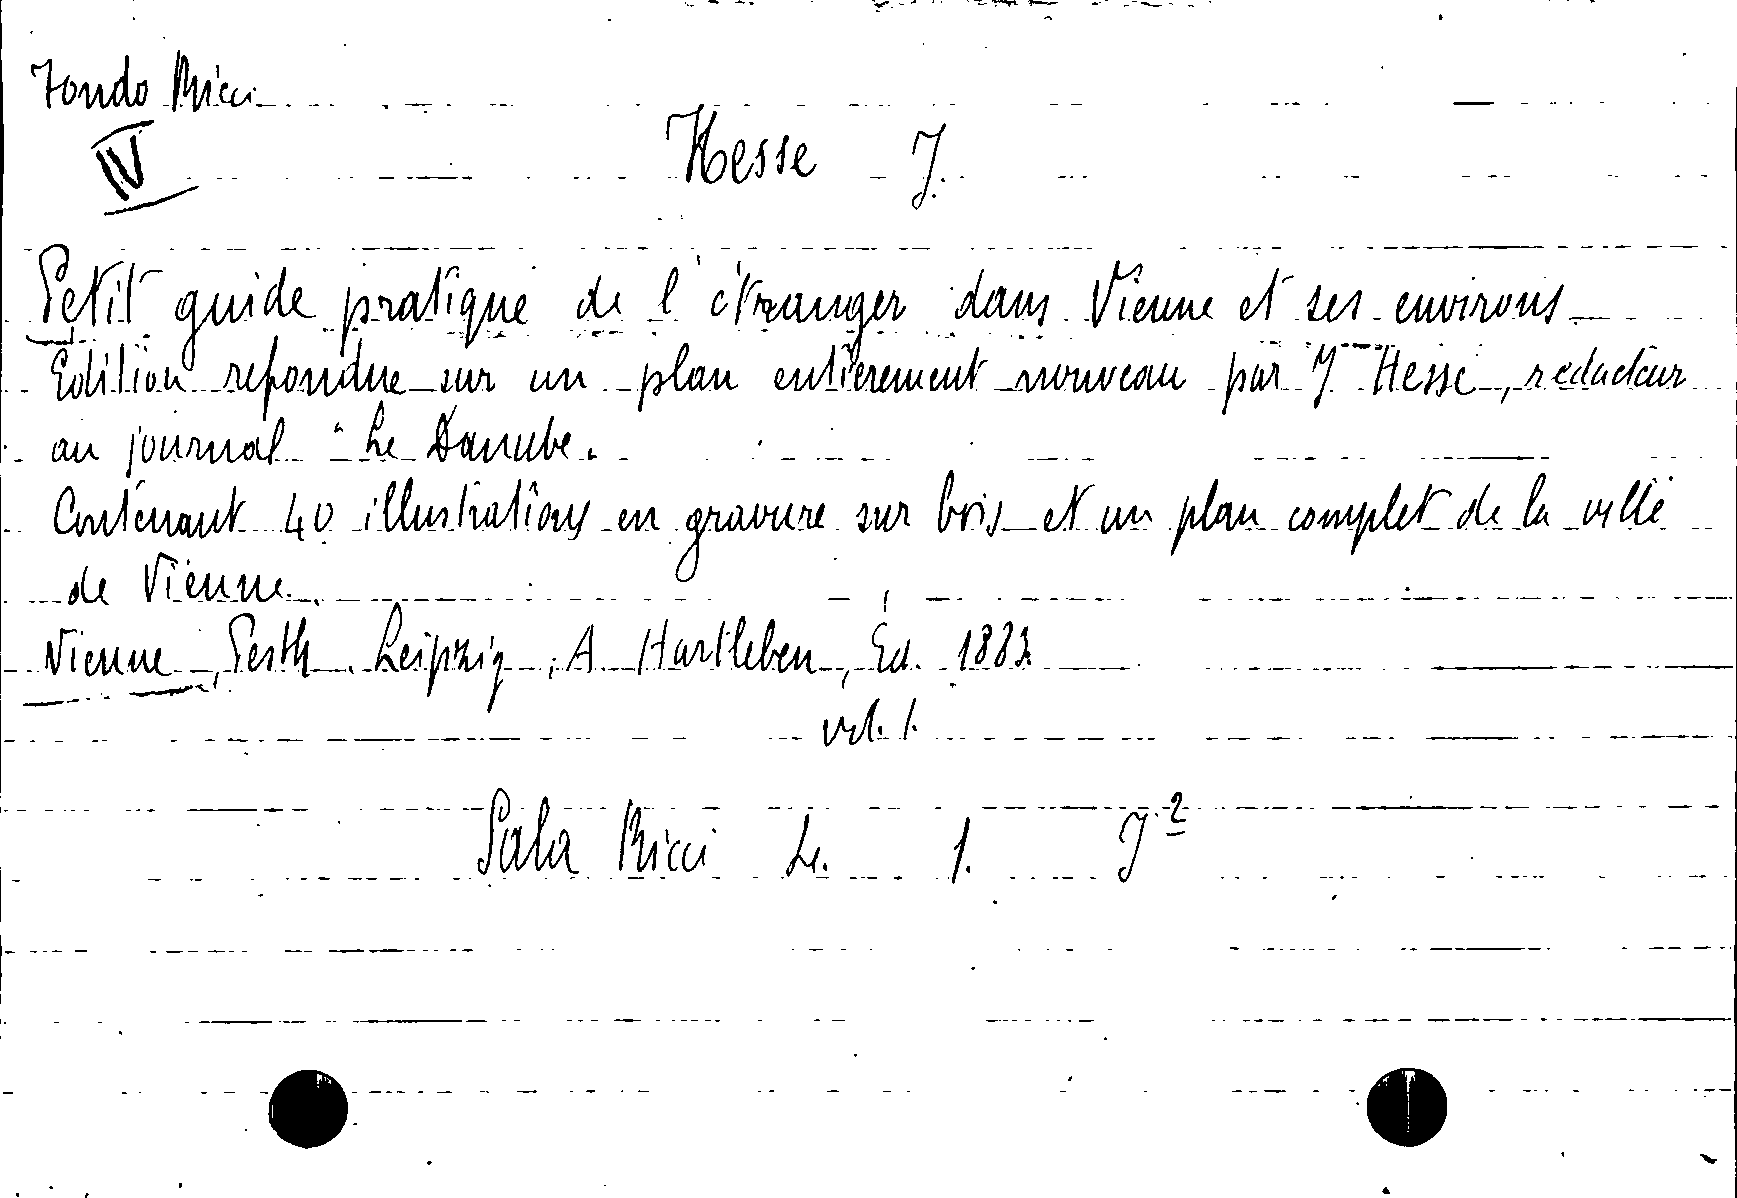 Fondo Ricci
IV
Hesse J.
Petit guide pratique de l'étranger dans Vienne et ses environs
Edition refondue sur un plan entièrement nouveau par J Hesse, redacteur
au journal "Le Danube.
Contenant 40 illustrations en gravure sur bois et un plan complet de la ville
de Vienne.
Vienne, Pesth. Leipzig, A. Hartleben, Éd. 1883.
vol. 1.
Sala Ricci L. 1. J²